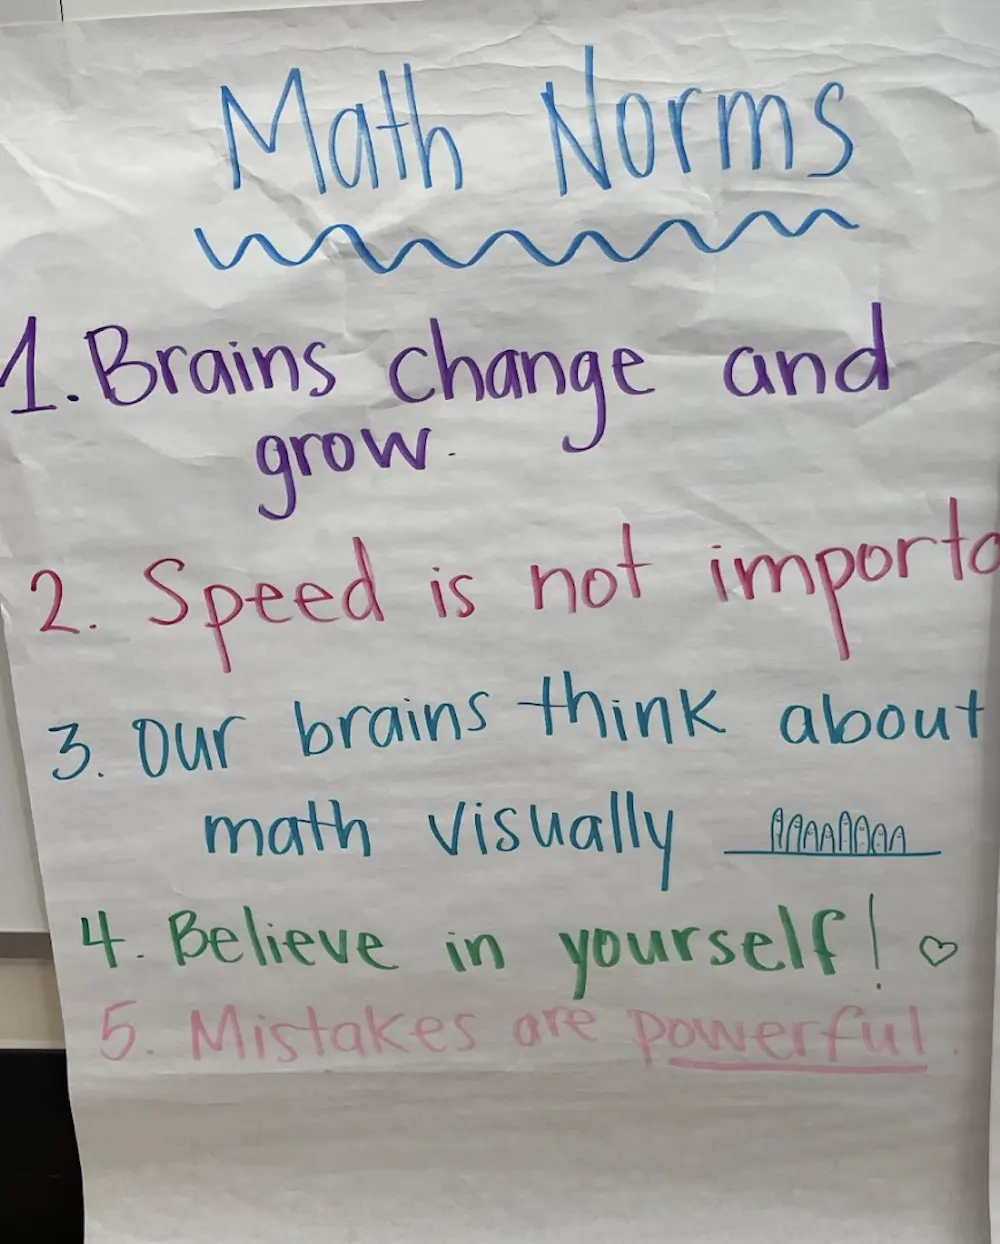 Math Norms
1. Brains change and
grow.
2. Speed is not importa
3. Our brains think about
math visually
4. Believe in yourself! ♡
5. Mistakes are powerful.